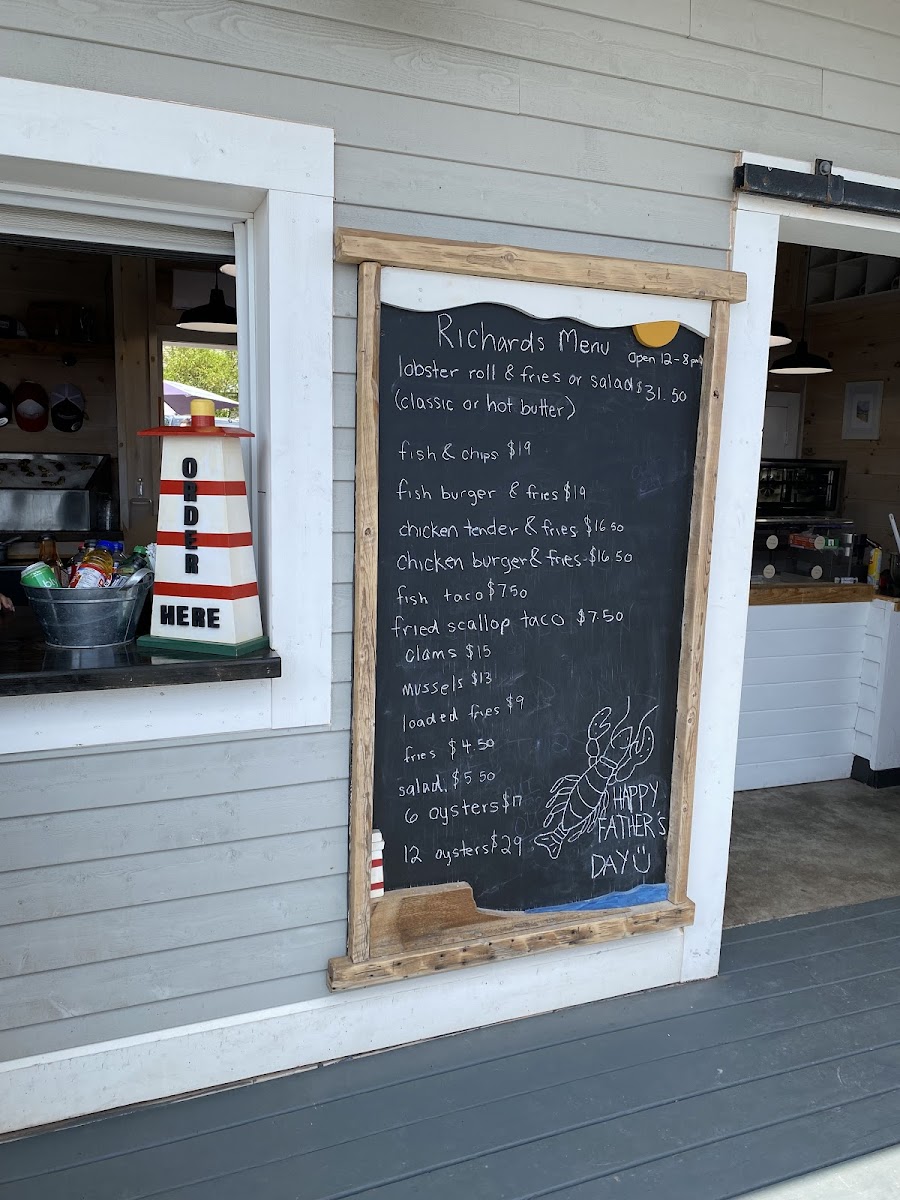 ORDER
HERE
Richards Menu
open 12-8pm
lobster roll & fries or salad $31.50
(classic or hot butter)
fish & chips $19
fish burger & fries $19
chicken tender & fries $16.50
chicken burger & fries-$16.50
fish taco $7.50
fried scallop taco $7.50
clams $15
mussels $13
loaded fries $9
fries $4.50
salad $5.50
6 oysters $17
12 oysters $29
HAPPY
FATHER'S
DAY